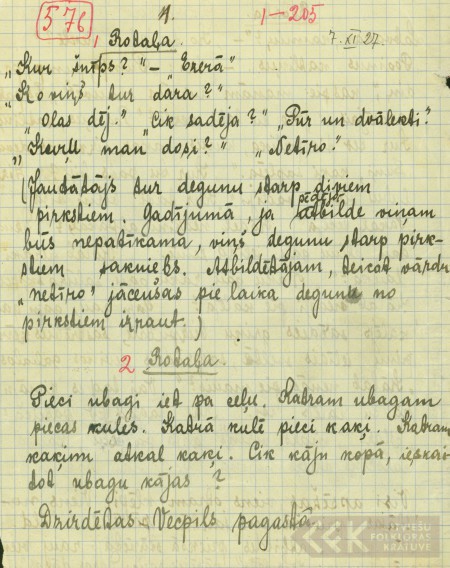 576
4.
1-205
7. XI 27.
1 Rotaļa
"Kur šnīps?" – "Ezerā"
"Ko viņš tur dara?"
"Olas dēj." "Cik sadēja?" "Pūr un dvālekti."
man dosi?" "Netīro."
(Jautātājs tur degunu starp diviem
pirkstiem. Gadījumā, ja pēdējā atbilde viņam
būs nepatīkama, viņš degunu starp pirk-
stiem sakniebs. Atbildētājam, teicot vārdu
"netīro" jācenšas pie laika degunu no
pirkstiem izraut.)
2 Rotaļa.
Pieci ubagi iet pa ceļu. Katram ubagam
piecas kules. Katrā kulē pieci kaķi. Katram
kaķim atkal kaķi. Cik kāju kopā, ieskai
tot ubagu kājas?
Dzirdētas Vecpils pagastā
LATVIEŠU
FOLKLORAS
KRĀTUVE